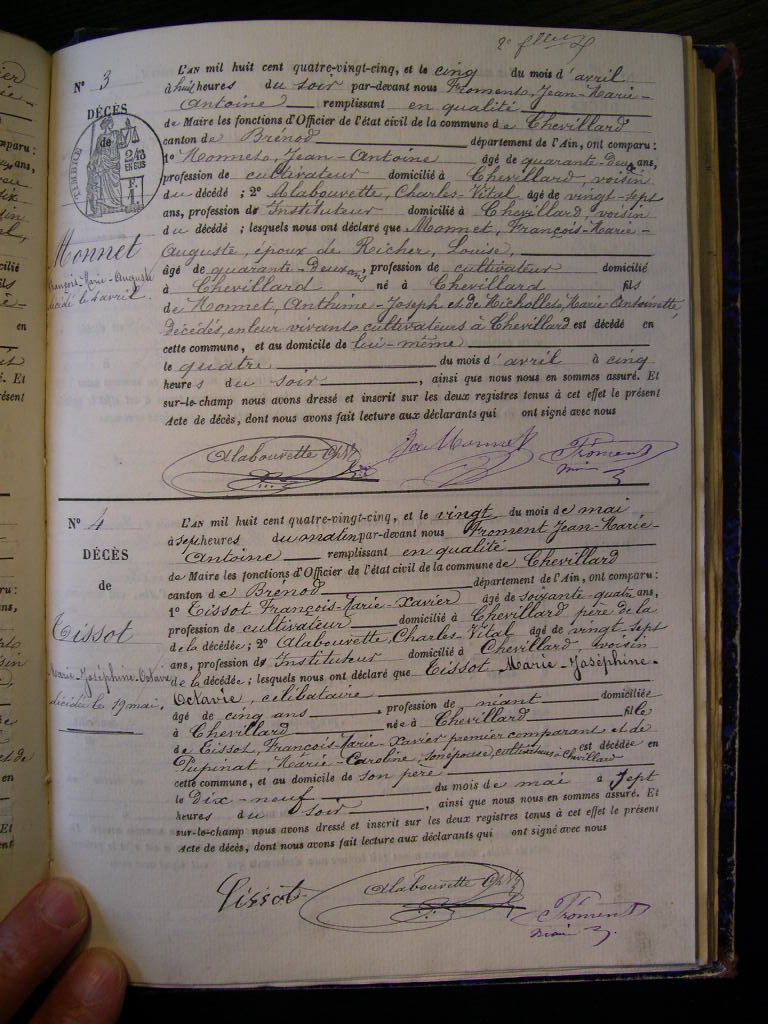 2e
N° 3
DÉCÈS
de
TIMBRE
Monnet
François-Marie-Auguste
décédé le 4 avril.
L'AN mil huit cent quatre-vingt-cinq, et le cinq du mois d'avril
à huit heures du soir par-devant nous Froment, Jean-Marie-
Antoine remplissant en qualité
de Maire les fonctions d'Officier de l'état civil de la commune de Chevillard
canton de Brénod département de l'Ain, ont comparu :
1° Monnet, Jean-Antoine âgé de quarante-deux ans,
profession de cultivateur domicilié à Chevillard, voisin
du décédé ; 2° Alabouvette, Charles-Vital âgé de vingt-sept
ans, profession d' Instituteur domicilié à Chevillard, voisin
du décédé ; lesquels nous ont déclaré que Monnet, François-Marie-
Auguste, époux de Richer, Louise,
âgé de quarante-deux ans, profession de cultivateur domicilié
à Chevillard né à Chevillard fils
de Monnet, Anthime-Joseph et de Nichollet, Marie-Antoinette,
décédés, en leur vivant cultivateurs à Chevillard est décédé en
cette commune, et au domicile de lui-même
le quatre du mois d'avril à cinq
heures du soir, ainsi que nous nous en sommes assuré. Et
sur-le-champ nous avons dressé et inscrit sur les deux registres tenus à cet effet le présent
Acte de décès, dont nous avons fait lecture aux déclarants qui ont signé avec nous
Alabouvette Ch. Vl Monnet Froment
N° 4
DÉCÈS
de
Tissot
Marie-Joséphine-Octavie
décédée le 19 mai.
L'AN mil huit cent quatre-vingt-cinq, et le vingt du mois de mai
à sept heures du matin par-devant nous Froment Jean-Marie-
Antoine remplissant en qualité
de Maire les fonctions d'Officier de l'état civil de la commune de Chevillard
canton de Brénod département de l'Ain, ont comparu :
1° Tissot François-Marie-Xavier âgé de soixante-quatre ans,
profession de cultivateur domicilié à Chevillard père de la
de la décédée ; 2° Alabouvette, Charles Vital âgé de vingt-sept
ans, profession d' Instituteur domicilié à Chevillard, voisin
de la décédée ; lesquels nous ont déclaré que Tissot Marie-Joséphine-
Octavie, célibataire
âgée de cinq ans, profession de néant domiciliée
à Chevillard née à Chevillard fille
de Tissot, François-Marie-Xavier premier comparant et de
Pupinat, Marie-Caroline, son épouse, cultivateurs à Chevillard est décédée en
cette commune, et au domicile de son père
le Dix-neuf du mois de mai à sept
heures du soir, ainsi que nous nous en sommes assuré. Et
sur-le-champ nous avons dressé et inscrit sur les deux registres tenus à cet effet le présent
Acte de décès, dont nous avons fait lecture aux déclarants qui ont signé avec nous
Tissot Alabouvette Ch. Vl Froment